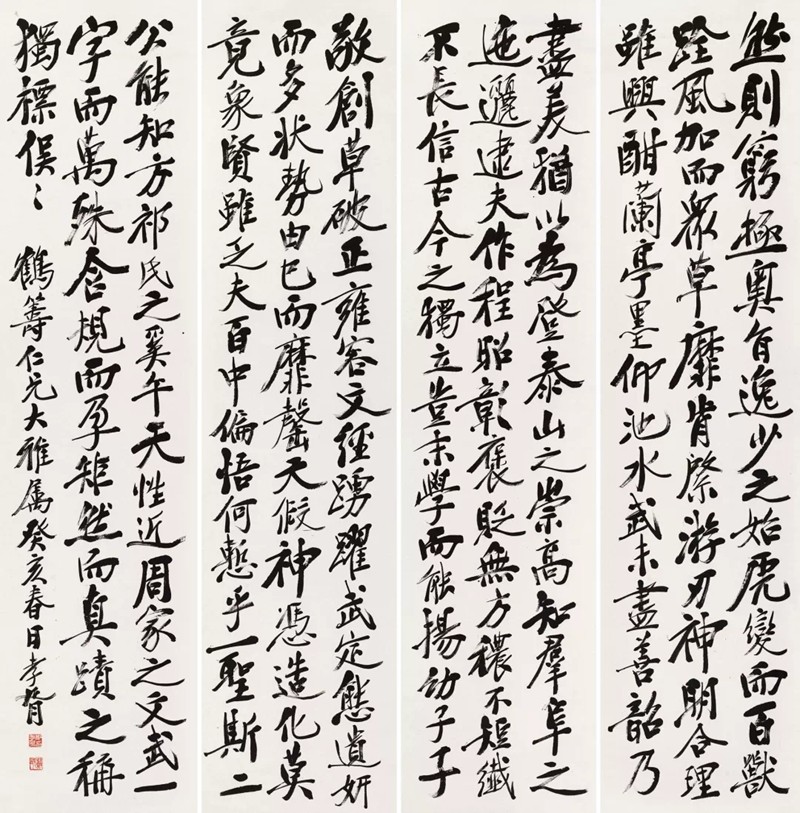 然則窮極奧旨逸少之始虎變而百獸
跧風加而眾草靡肯綮游刃神明合理
雖興酣蘭亭墨仰池水武未盡善韶乃
盡美猶以為登泰山之崇高知羣阜之
迤邐逮夫作程昭彰褒貶無方穠不短纖
不長信古今之獨立豈末學而能揚幼子子
敬創草破正雍容文經踴躍武定態遺妍
而多狀勢由己而靡罄天假神憑造化莫
竟象賢雖乏夫百中偏悟何慙乎一聖斯二
公能知方祁氏之奚午天性近周家之文武一
字而萬殊含規而孕矩然而真蹟之稱
獨標俣〻 鶴籌仁兄大雅属癸亥春日孝胥